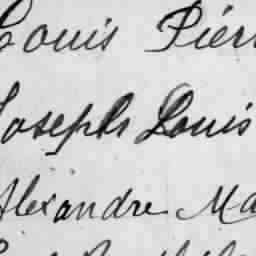 Louis Pierr
Joseph Louis
Alexandre Ma